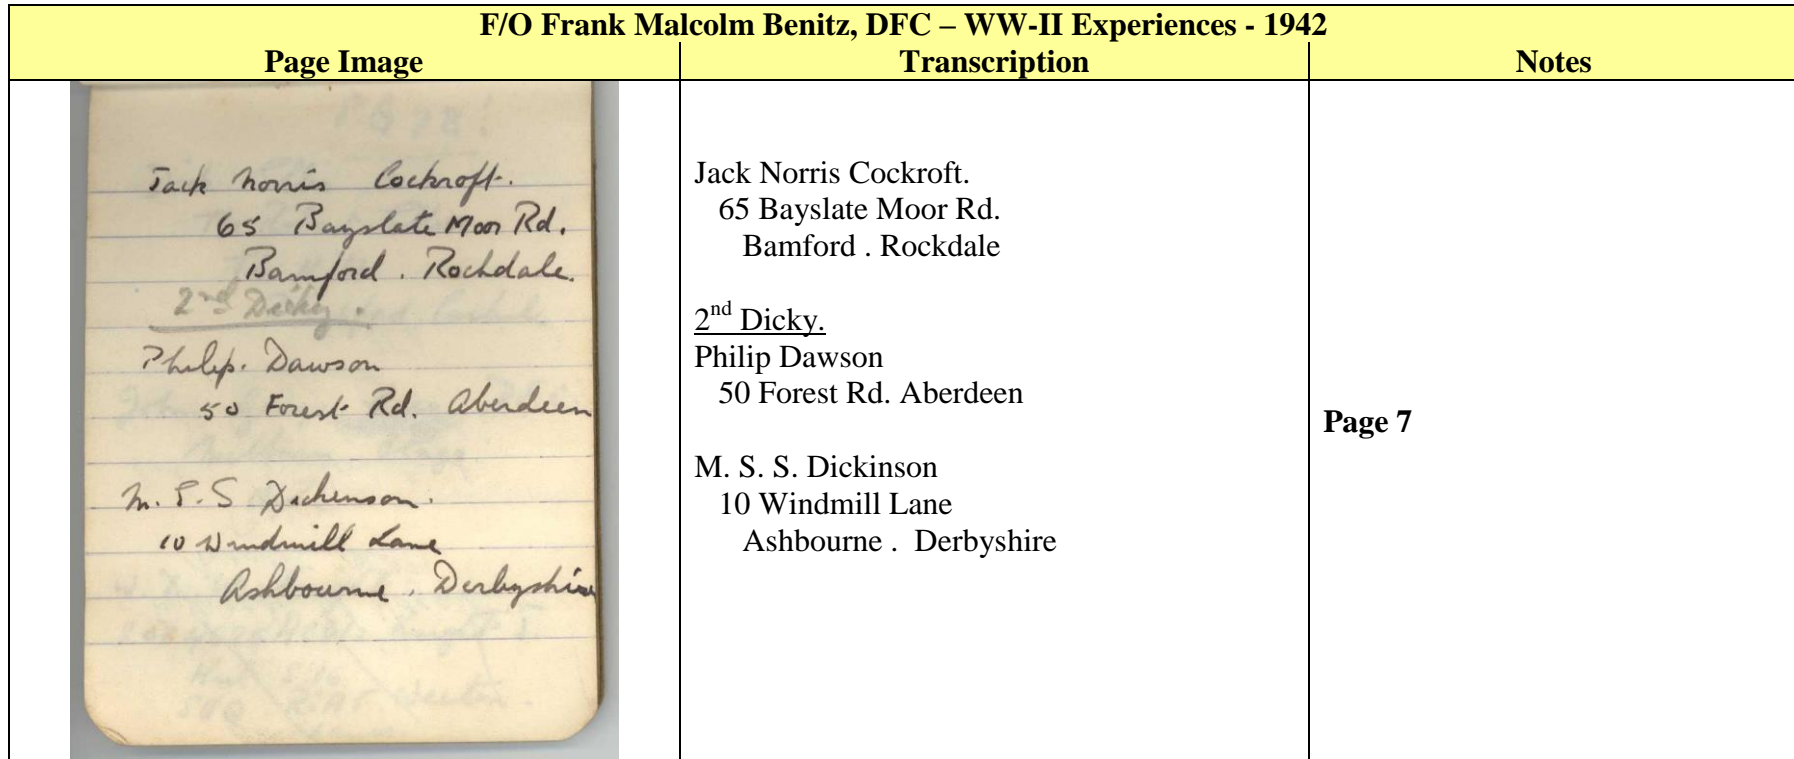 F/O Frank Malcolm Benitz, DFC – WW-II Experiences - 1942
Page Image
Transcription
Notes
Jack Norris Cockroft.
65 Bayslate Moor Rd.
Bamford . Rochdale.
2nd Dicky.
Philip. Dawson
50 Forest Rd. Aberdeen
M. S. S Dickenson.
10 Windmill Lane
Ashbourne . Derbyshire
Jack Norris Cockroft.
65 Bayslate Moor Rd.
Bamford . Rockdale
2nd Dicky.
Philip Dawson
50 Forest Rd. Aberdeen
M. S. S. Dickinson
10 Windmill Lane
Ashbourne . Derbyshire
Page 7